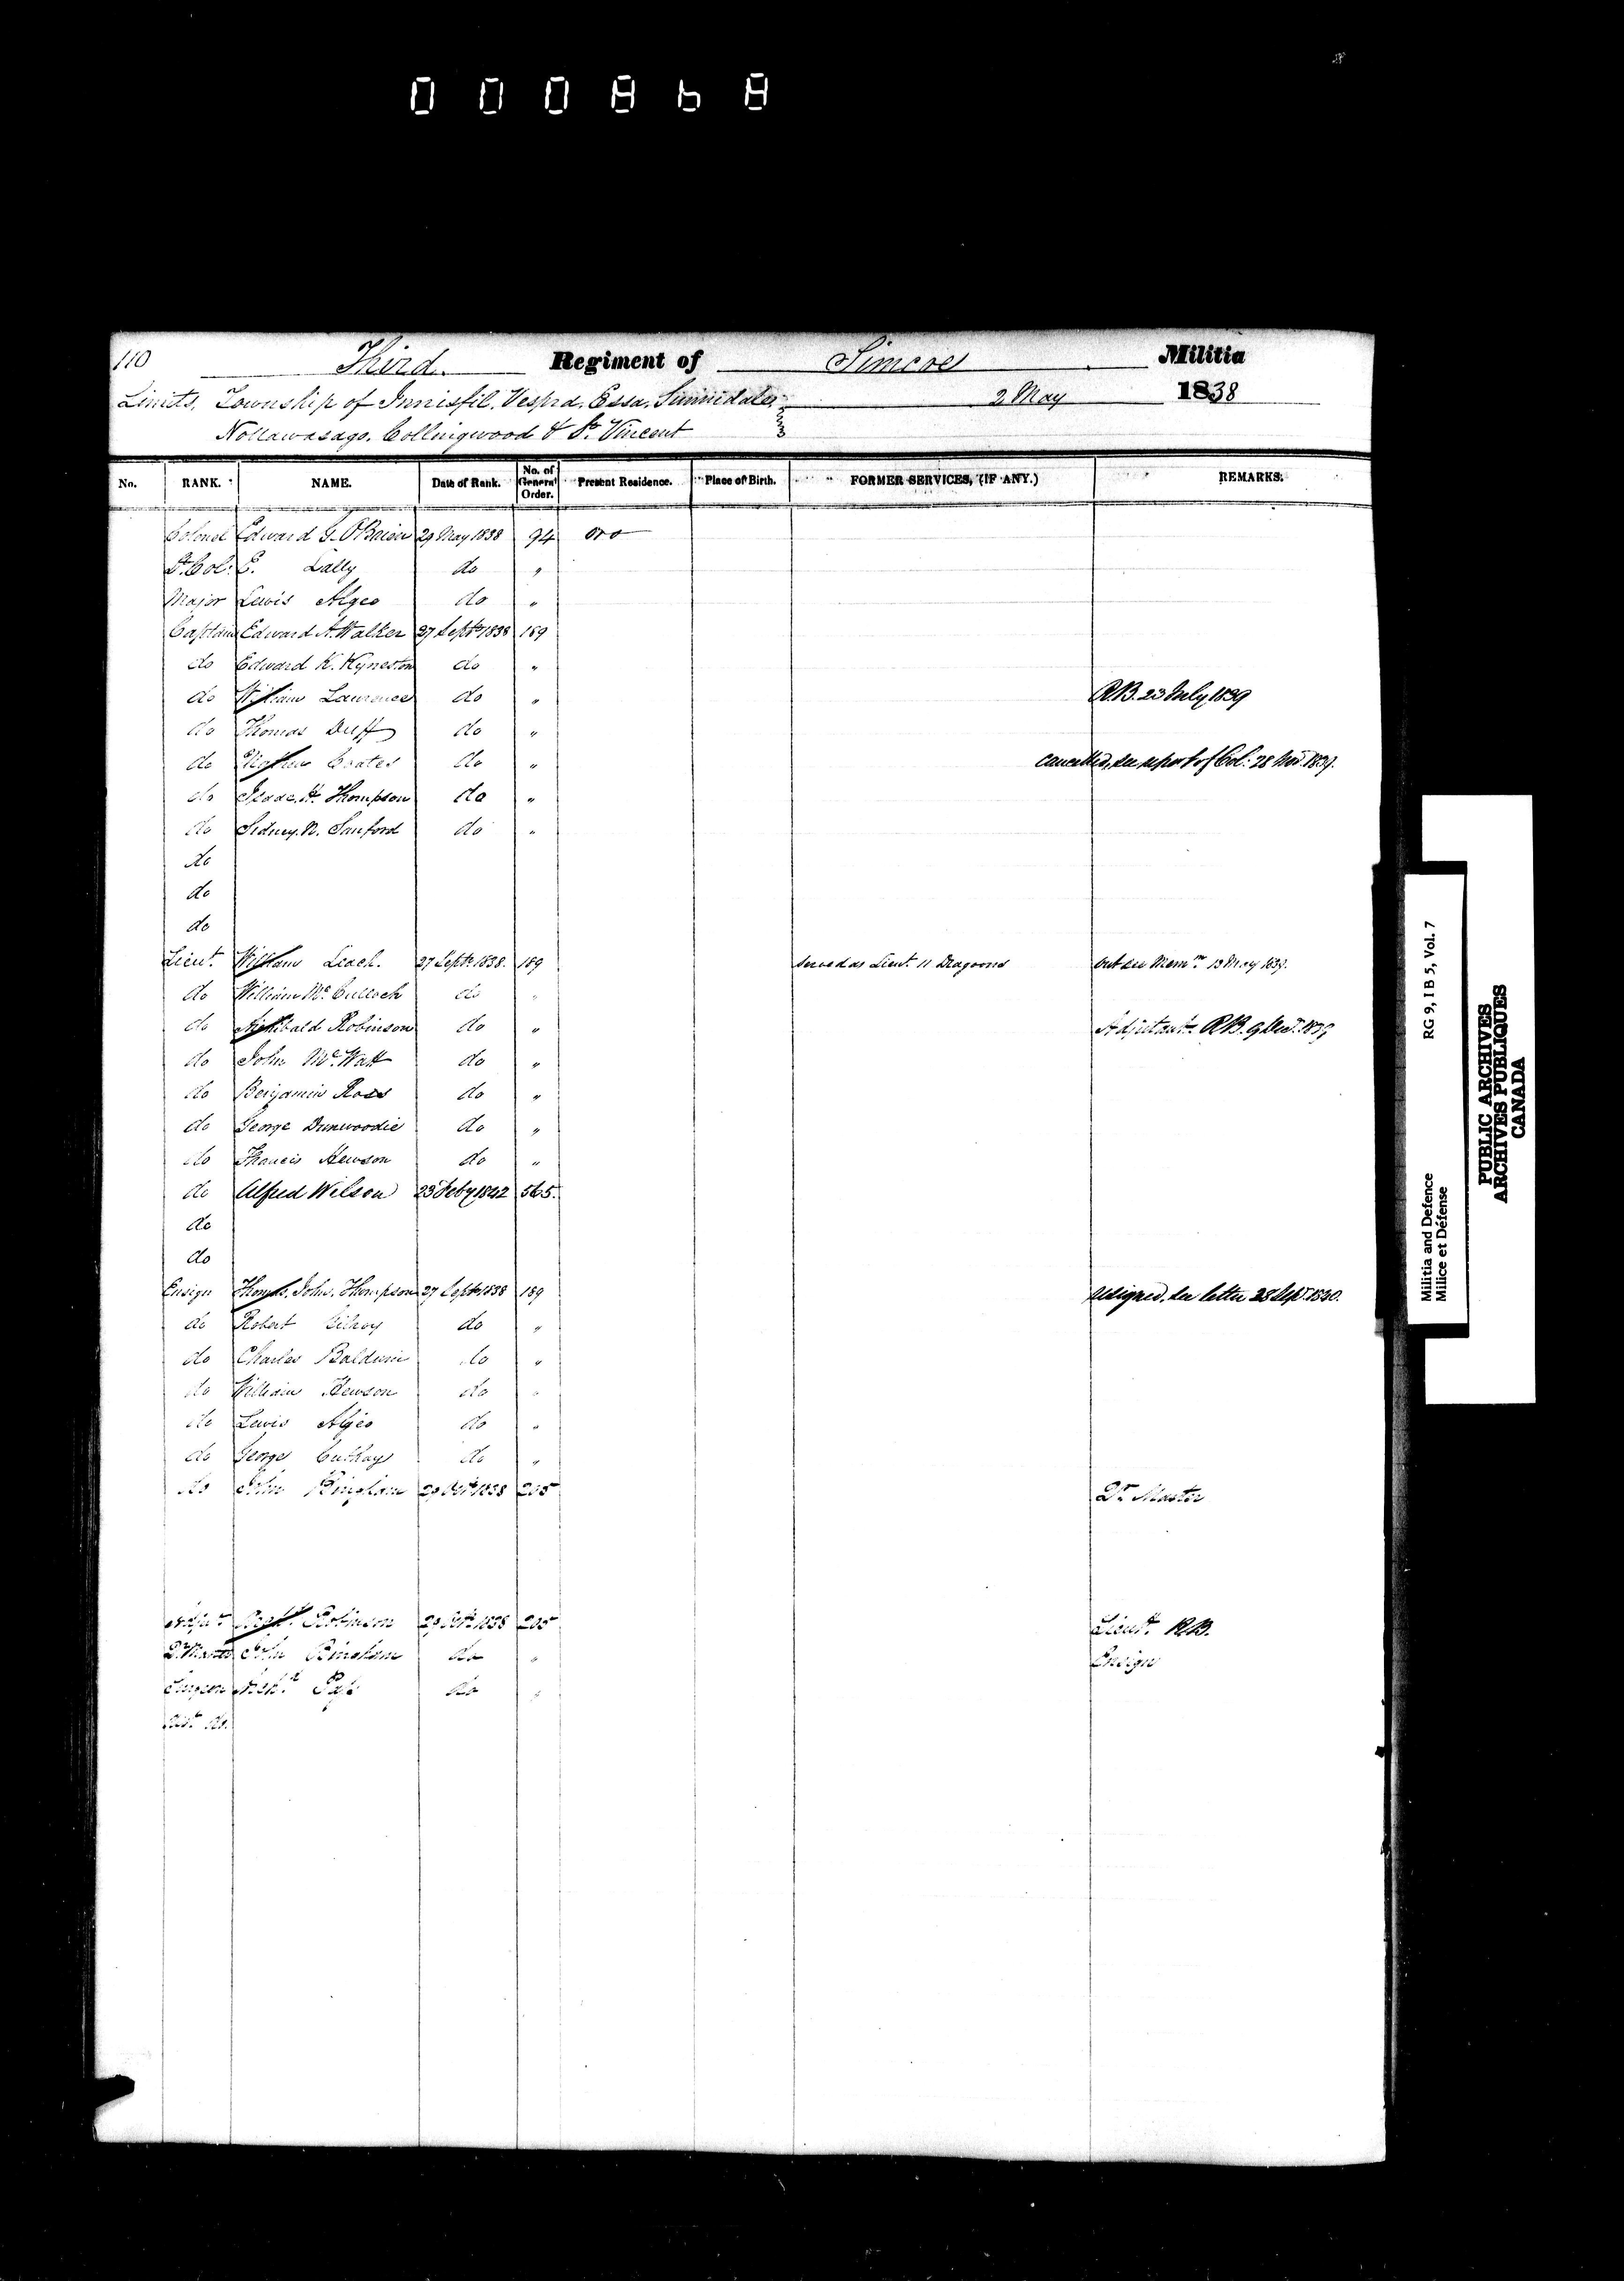 000868
110 Third. Regiment of Simcoe Militia
Limits. Township of Innisfil. Vespra. Essa. Sunnidale. 2 May 1838
Nottawasaga. Collingwood & St. Vincent
No. RANK. NAME. Date of Rank. No. of General Order. Present Residence. Place of Birth. FORMER SERVICES, (IF ANY.) REMARKS.
Colonel Edward G. O'Brien 29 May 1838 94 Oro
Lt. Col. E. Lally do "
Major Lewis Algeo do "
Captain Edward A. Walker 27 Septr 1838 189
do Edward K. Kyneston do "
do William Laurence do " R.B. 23 July 1839
do Thomas Duff do "
do Mathew Coates do " cancelled, see report of Col: 28 Nov. 1839.
do Isaac H. Thompson do "
do Sidney. N. Sanford do "
do
do
do
Lieut. William Leach. 27 Septr 1838. 189 served as Lieut. 11 Dragoons Out see Memm 13 May 1839.
do William Mc. Culloch do "
do Archibald Robinson do " Adjutant R.B. 9 Decr. 1839
do John Mc. Watt do "
do Benjamin Ross do "
do George Dunwoodie do "
do Francis Hewson do "
do Alfred Wilson 23 Feby 1842 565.
do
do
Ensign Thomas. John. Thompson 27 Septr 1838 189 resigned. see letter 28 Sept. 1840.
do Robert Gilroy do "
do Charles Baldwin do "
do William Hewson do "
do Lewis Algeo do "
do George Cuthay do "
do John Bingham 29 Octr 1838 205 Qr. Master
Adjut Archd. Robinson 29 Octr 1838 205 Lieut. R.B.
Qr. Master John Bingham do " Ensign
Surgeon Archd. Pass do "
Asst. do.
RG 9, I B 5, Vol. 7
Militia and Defence
Milice et Défense
PUBLIC ARCHIVES
ARCHIVES PUBLIQUES
CANADA